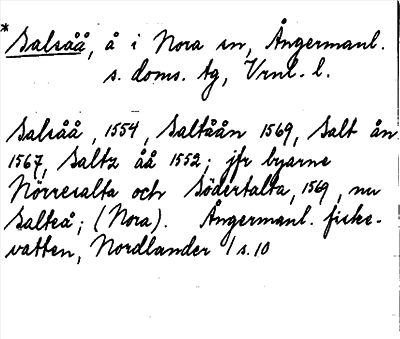 * Salsåå, å i Nora sn, Ångermanl.
s. doms. tg, Vrnl. l.
Salsåå, 1554, Saltåån 1569, Salt ån
1567, Saltz åå 1552; jfr byarne
Nörresalta och Södertalta, 1569, nu
Salteå; (Nora). Ångermanl. fiske-
vatten, Nordlander / s. 10